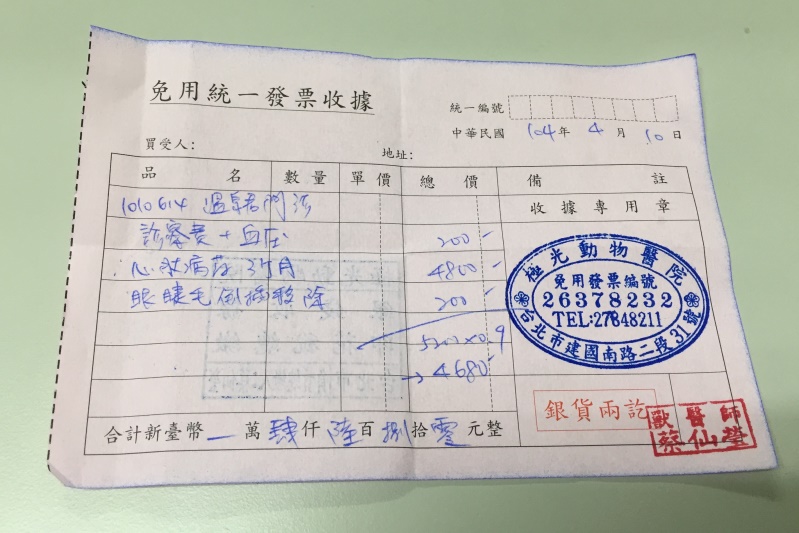 免用統一發票收據
統一編號
中華民國 104年 4月 10日
買受人：
地址：
品名 數量 單價 總價 備註
1010614 溫 門診
收據專用章
診察費+血压 200-
心臟病葯 3个月 4800-
眼睫毛倒插移除 200-
5200×0.9
→4680-
極光動物醫院
免用發票編號
26378232
TEL:27848211
台北市建國南路二段31號
銀貨兩訖
獸醫師
蔡仙瑩
合計新臺幣 一 萬 肆 仟 陸 百 捌 拾 零 元整